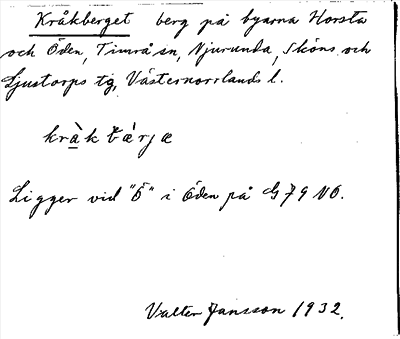 Kråkberget berg på byarna Horsta
och Öden, Timrå sn, Njurunda, Sköns och
Ljustorps tg, Västernorrlands l.
kràk bˈærjæ
Ligger vid "Ö" i Öden på G 79 NO.
Valter Jansson 1932.